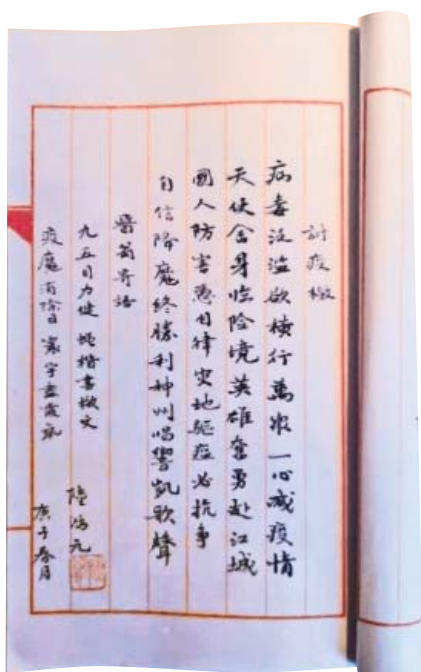 討疫檄
病毒泛滥欲横行萬衆一心滅疫情
天使舍身临险境英雄奮勇赴江城
國人防害憑自律灾地驅瘟必抗争
自信降魔终勝利神州唱響凱歌聲
寄语
九五目力健 蝇楷書檄文
疫魔消除日 寰宇盡
陸鴻元
庚子春月